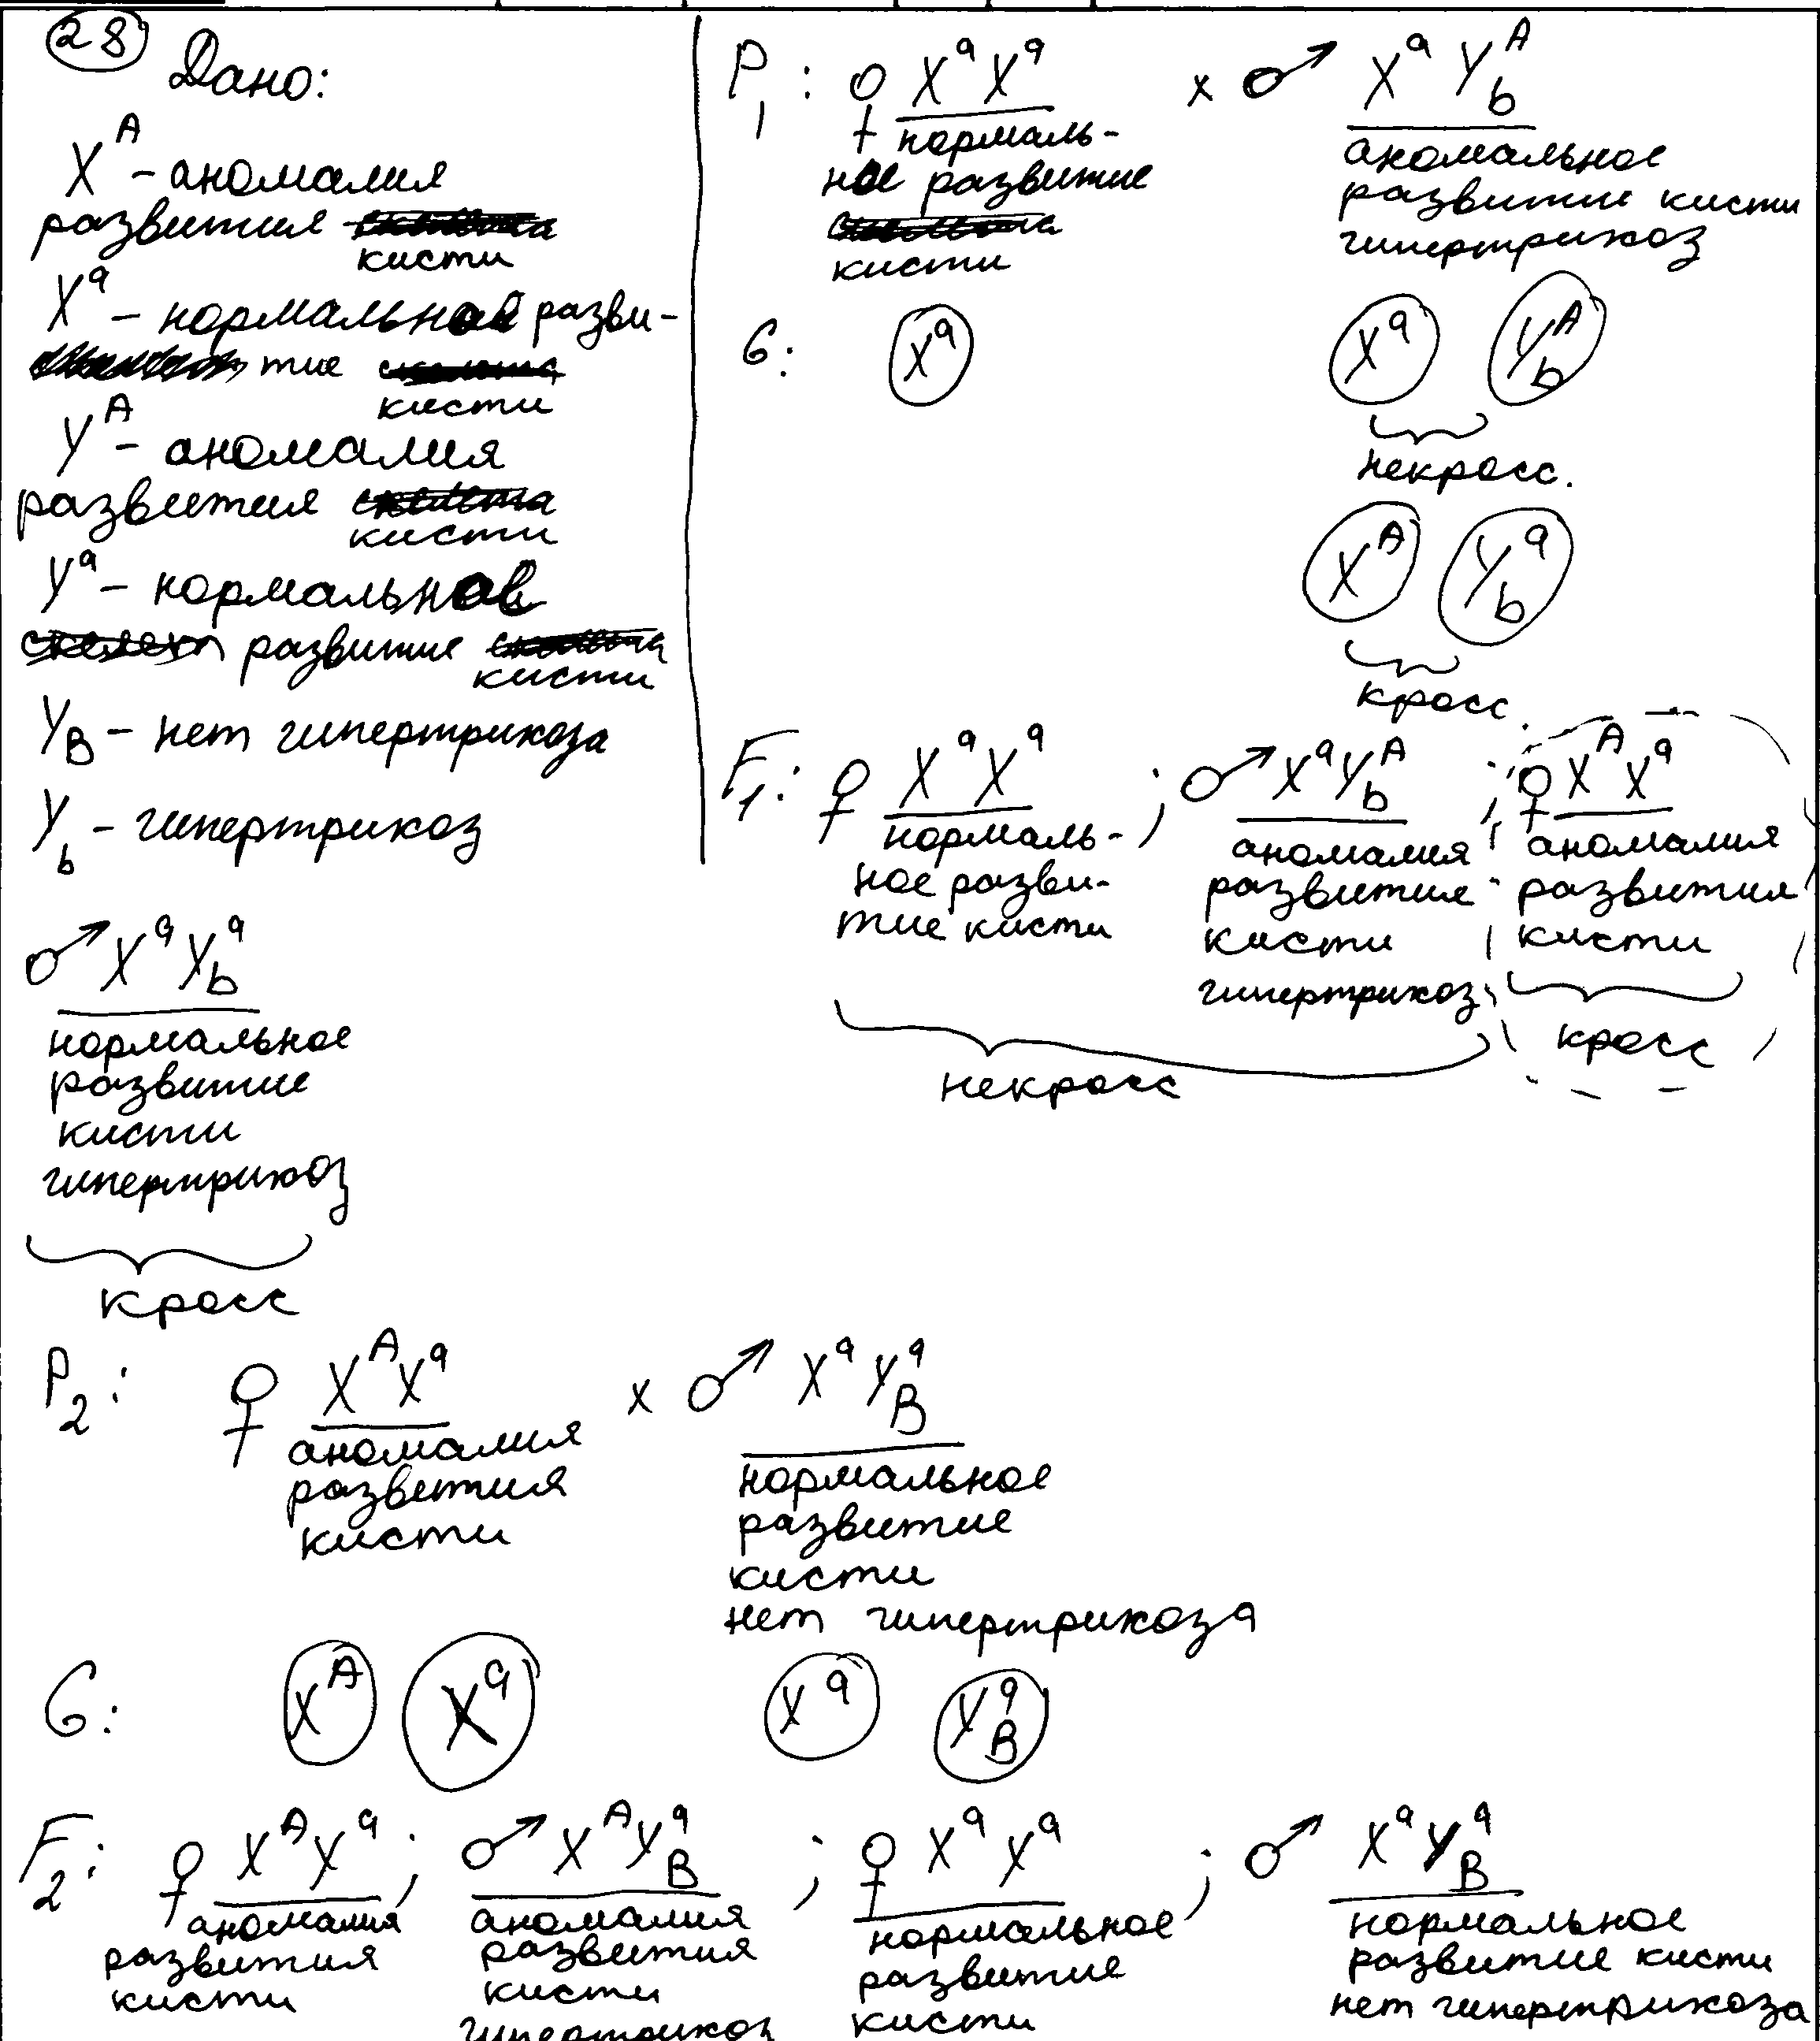 28 Дано:
X^A - аномалия
развития
кисти
X^a - нормальное разви-
тие
кисти
Y^A - аномалия
развития
кисти
Y^a - нормальное
развитие
кисти
Y_B - нет гипертрихоза
Y_b - гипертрихоз
P_1: ♀ X^a X^a x ♂ X^a Y_b^A
нормаль-
ное развитие
кисти
аномальное
развитие кисти
гипертрихоз
G: X^a X^a Y_b^A
некросс.
X^A Y_b^a
кросс.
F_1: ♀ X^a X^a ; ♂ X^a Y_b^A ; ♀ X^A X^a
нормаль-
ное разви-
тие кисти
аномалия
развития
кисти
гипертрихоз
аномалия
развития
кисти
некросс
кросс
♂ X^a Y_b^a
нормальное
развитие
кисти
гипертрихоз
кросс
P_2: ♀ X^A X^a x ♂ X^a Y_B^a
аномалия
развития
кисти
нормальное
развитие
кисти
нет гипертрихоза
G: X^A X^a X^a Y_B^a
F_2: ♀ X^A X^a ; ♂ X^A Y_B^a ; ♀ X^a X^a ; ♂ X^a Y_B^a
аномалия
развития
кисти
аномалия
развития
кисти
гипертрихоз
нормальное
развитие
кисти
нормальное
развитие кисти
нет гипертрихоза